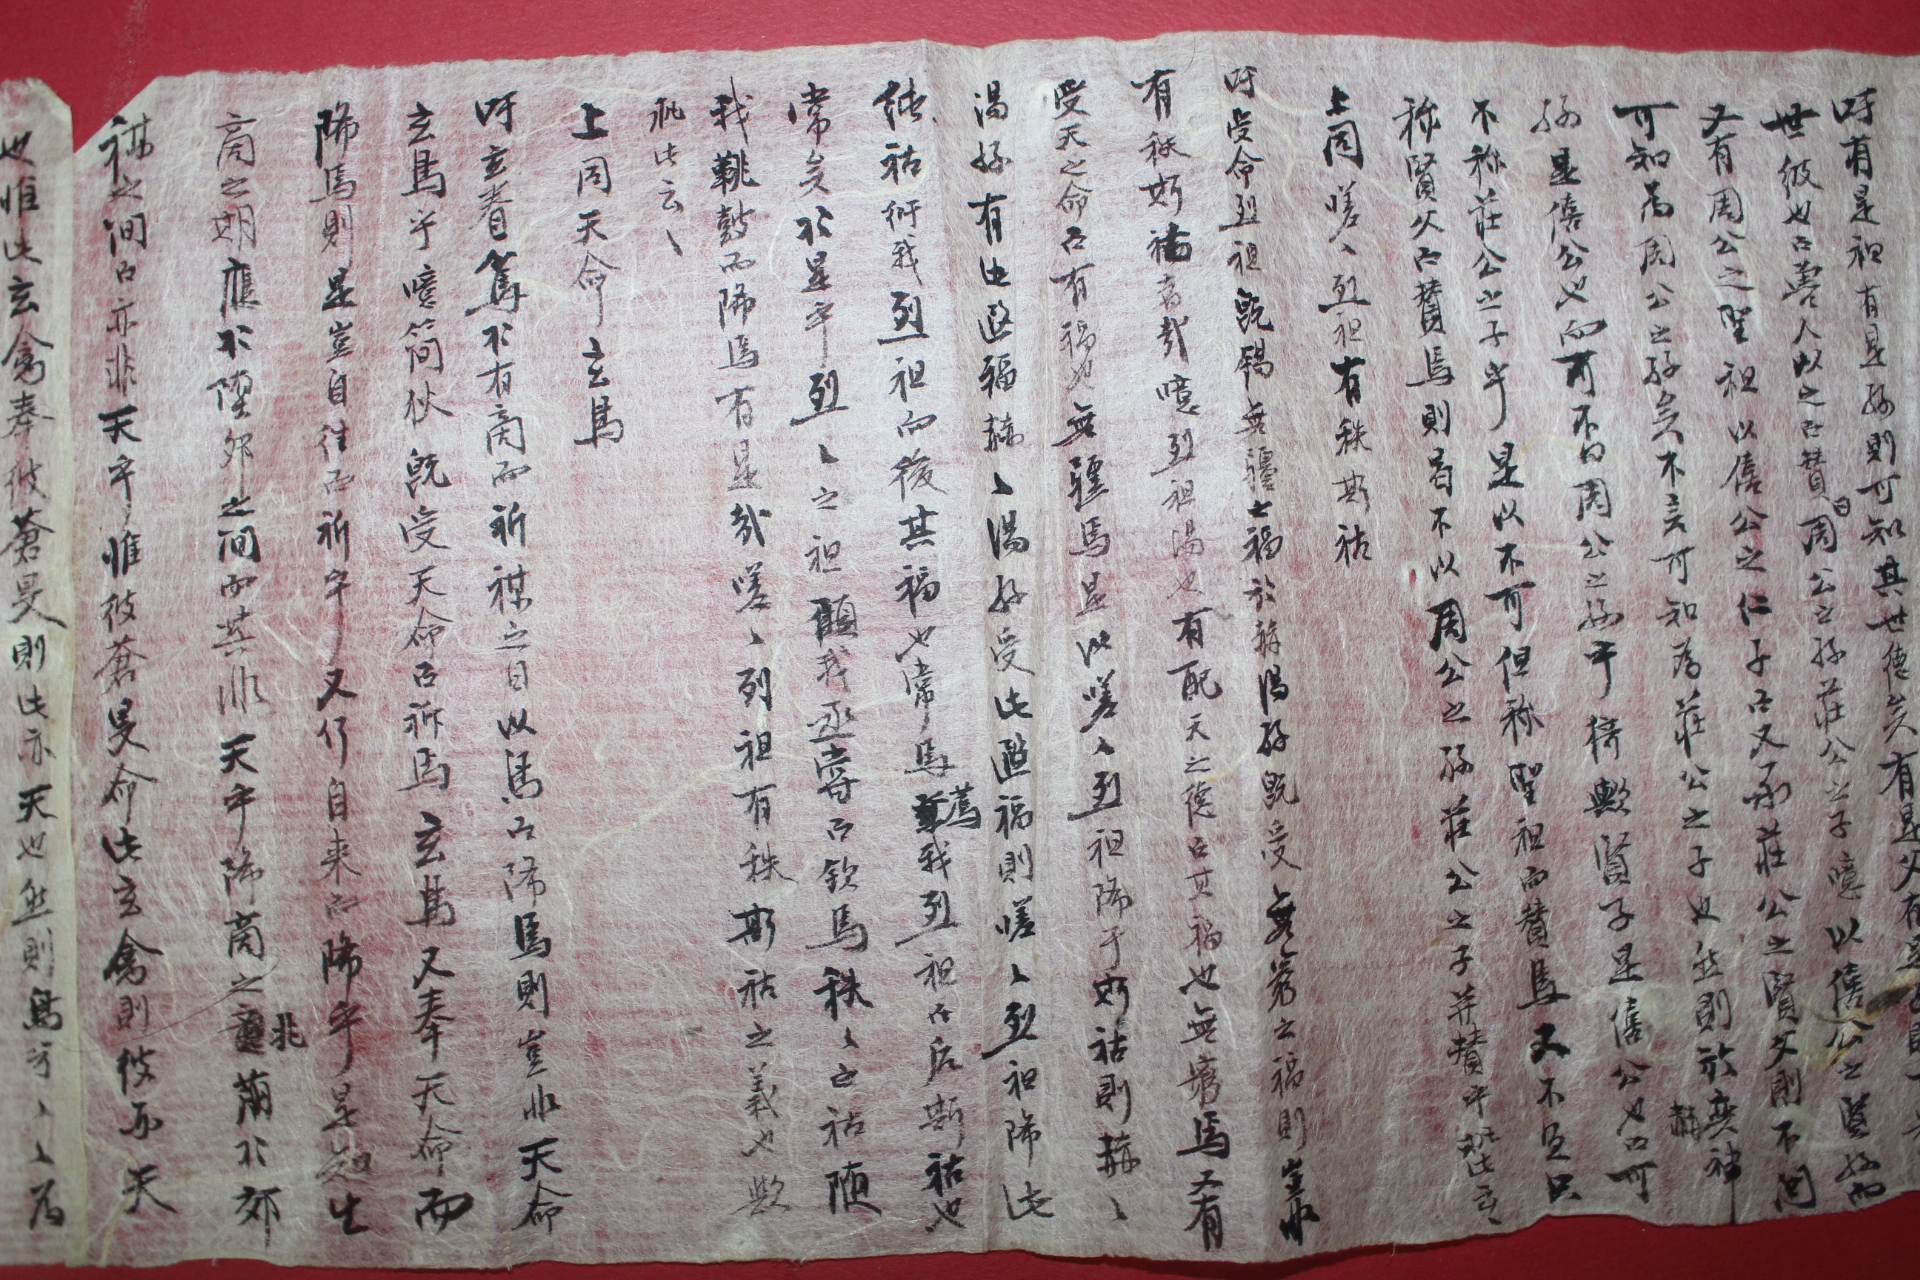 吁有是祖有是孫則可知其世德矣有是父有
世彼也亦魯人以之亦贊曰周公之孫莊公之子噫以僖公之賢孫而
又有周公之聖祖以僖公之仁子亦又承莊公之賢父則不問
可知為周公之孫矣不言可知為莊公之子也然則於奕神
孫是僖公也而可不曰周公之孫乎猗歟賢子是僖公也亦可
不称莊公之子乎是以不可但称聖祖而贊焉又不足只
称賢父而贊焉則曷不以周公之孫莊公之子并贊乎
上同嗟〻烈祖有秩斯祜
吁受命烈祖旣錫無疆之福於赫湯孫旣受無窮之福則豈非
有秩斯祜者哉噫烈祖湯也有配天之德亦其福也無窮焉又有
受天之命亦有福也無疆焉是以嗟〻烈祖降于斯祜則赫〻
湯孫有此遐福赫〻湯孫受此遐福則嗟〻烈祖降此
純祜衎我烈祖而後其福也常焉薦我烈祖而后斯祜也
常矣於是乎烈〻之祖顧我丞嘗而欽焉秩〻之祜随
我鞉鼓而降焉有是哉嗟〻列祖有秩斯祜之義也歟
執此云〻
上同天命玄鳥
吁玄春鳥於有商而祈禖之日以鳥而降焉則豈非天命
玄鳥乎噫簡狄旣受天命而祈焉玄鳥又奉天命而
降焉則是豈自往而祈乎又何自来而降乎是知生
商之期應於陞郊之間而其非天乎降商之兆萠於郊
禖之間而亦非天乎惟彼蒼旻命此玄禽則彼亦天
也惟此玄禽奉彼蒼旻則此亦天也然則鳥乎〻〻為